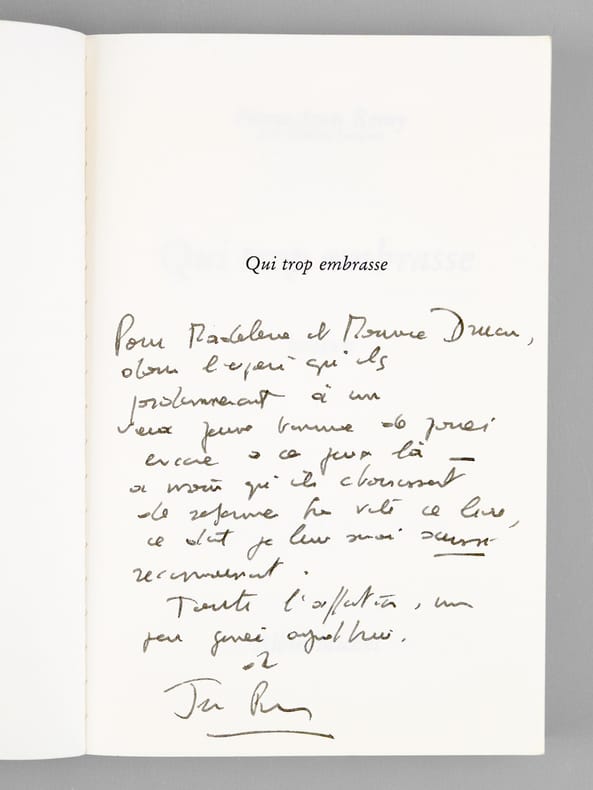 Qui trop embrasse
Pour Madeleine et Maurice Druon,
dans l'espoir qu'ils
pardonneront à un
vieux jeune homme de jouer
encore à ce jeux là —
à moins qu'ils choisissent
de refermer très vite ce livre,
ce dont je leur serai aussi
reconnaissant.
Toute l'affection, un
peu gênée aujourd'hui,
de